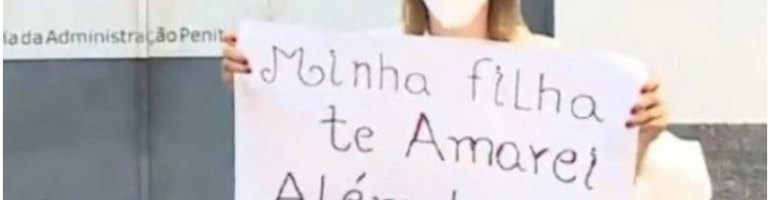 ia da Administração Penit
Minha filha
te Amarei
Além